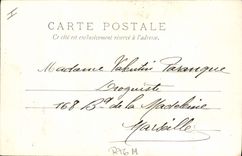 CARTE POSTALE
Ce côté est exclusivement réservé à l'adresse.
Madame Valentin Paranque
Droguiste
168 Bd de la Madeleine
Marseille